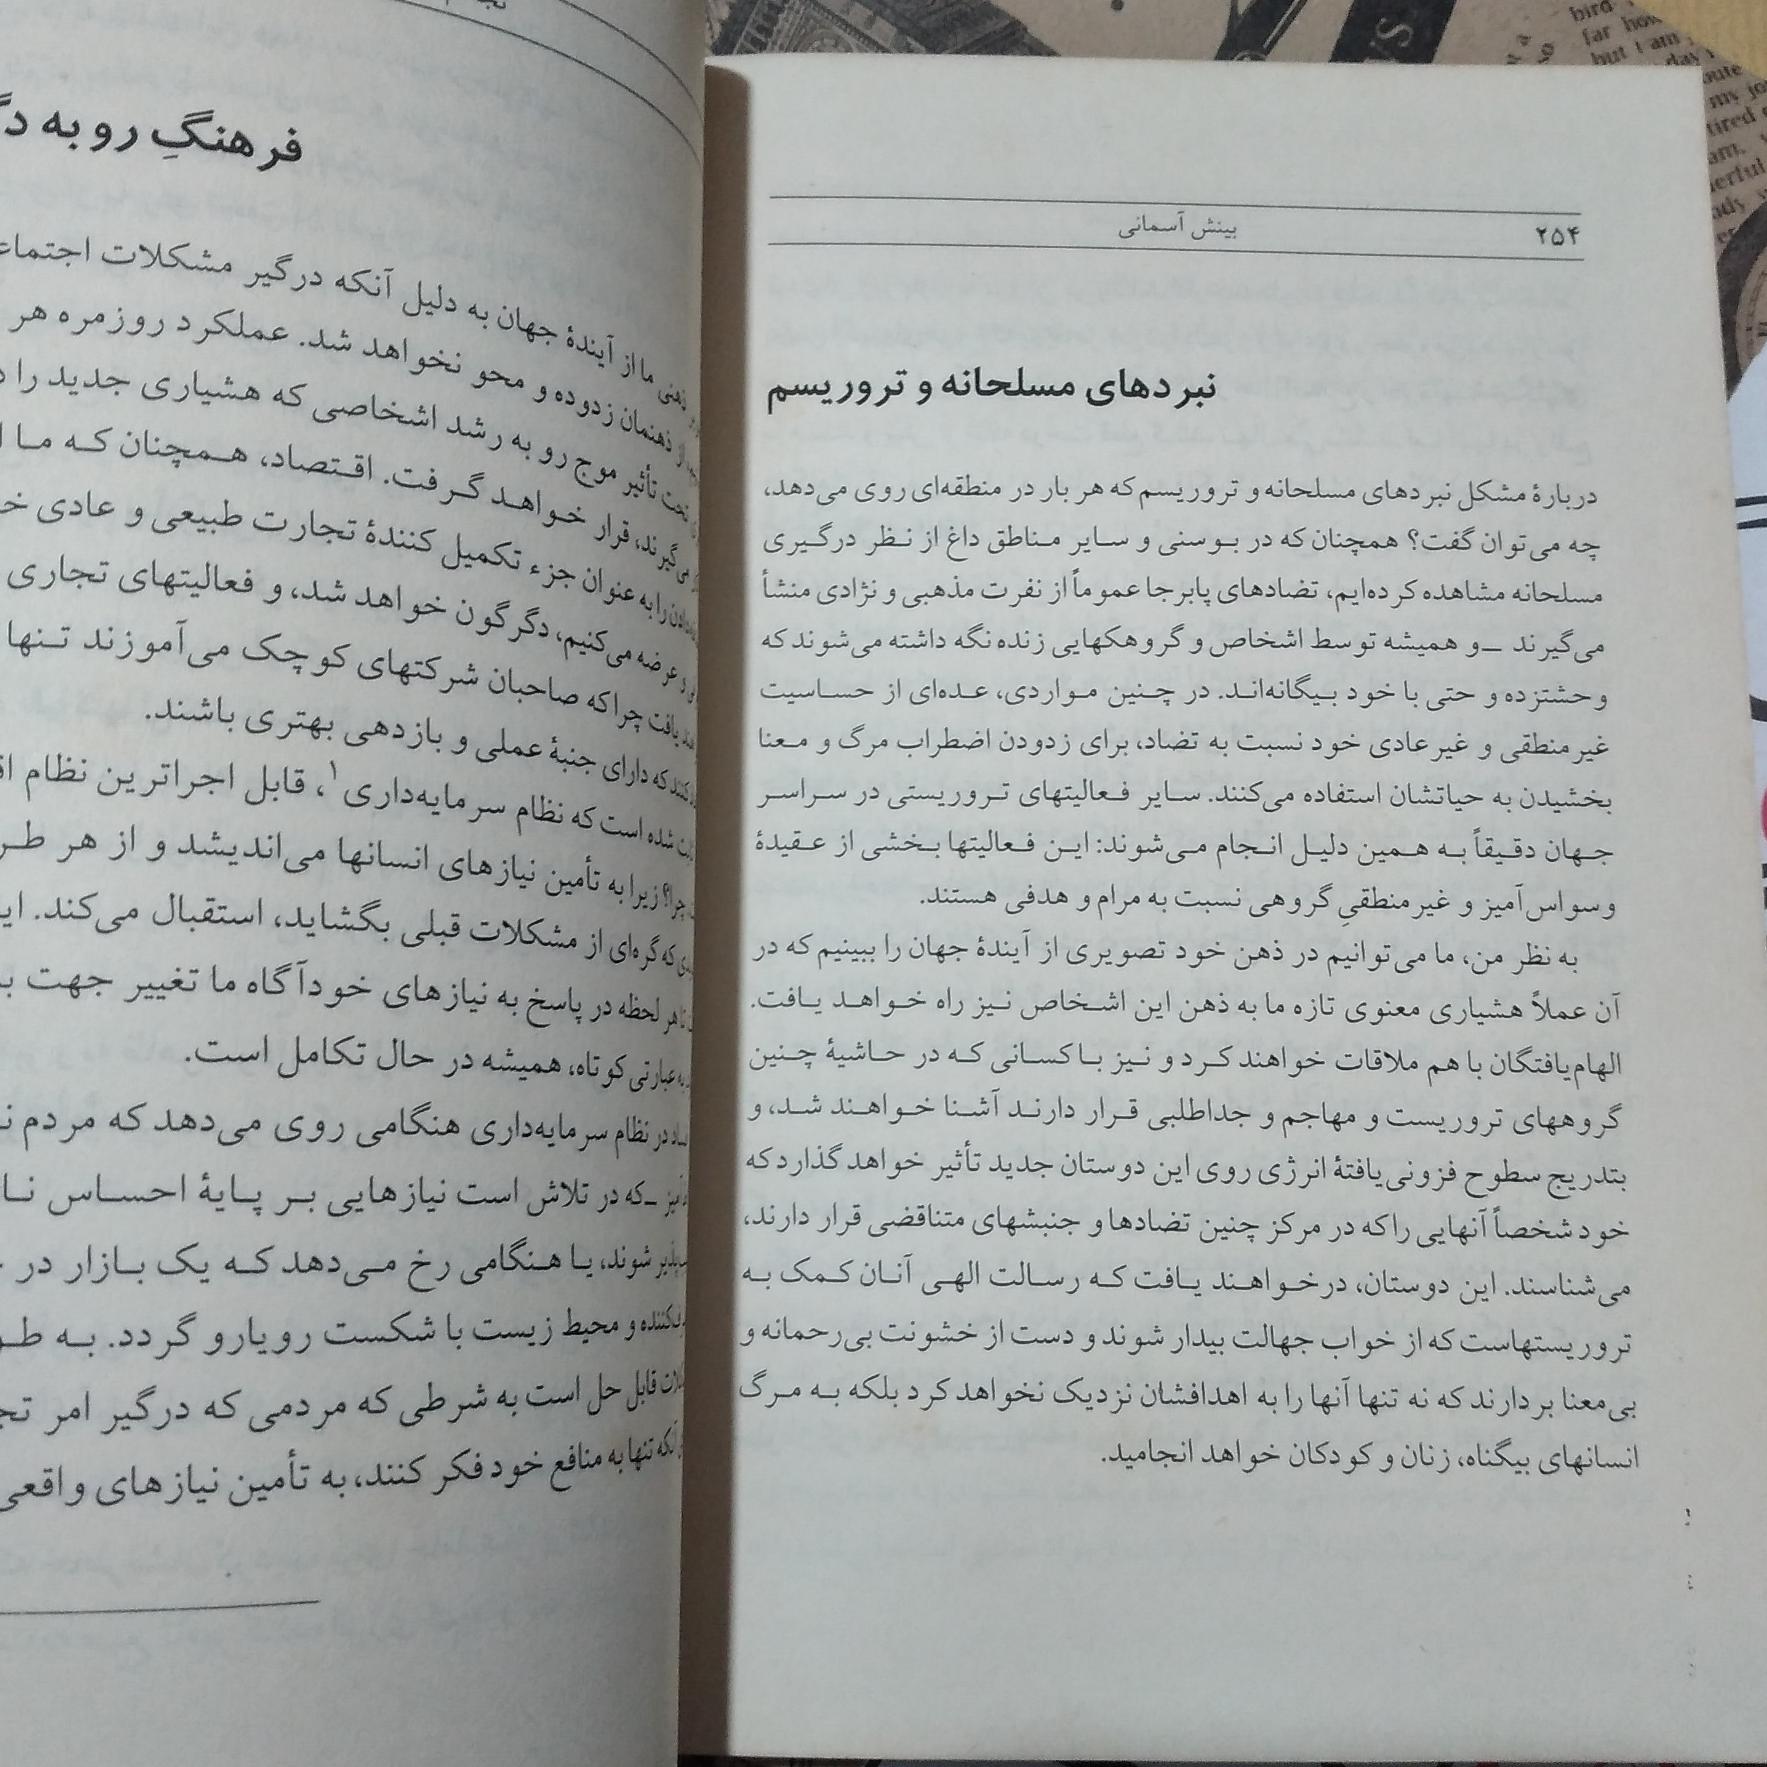 ۲۵۴
بینش آسمانی
نبردهای مسلحانه و تروریسم
دربارهٔ مشکل نبردهای مسلحانه و تروریسم که هر بار در منطقه‌ای روی می‌دهد،
چه می‌توان گفت؟ همچنان که در بوسنی و سایر مناطق داغ از نظر درگیری
مسلحانه مشاهده کرده‌ایم، تضادهای پابرجا عموماً از نفرت مذهبی و نژادی منشأ
می‌گیرند ـ و همیشه توسط اشخاص و گروهکهایی زنده نگه داشته می‌شوند که
وحشتزده و حتی با خود بیگانه‌اند. در چنین مواردی، عده‌ای از حساسیت
غیرمنطقی و غیرعادی خود نسبت به تضاد، برای زدودن اضطراب مرگ و معنا
بخشیدن به حیاتشان استفاده می‌کنند. سایر فعالیتهای تروریستی در سراسر
جهان دقیقاً به همین دلیل انجام می‌شوند: این فعالیتها بخشی از عقیدهٔ
وسواس‌آمیز و غیرمنطقیِ گروهی نسبت به مرام و هدفی هستند.
به نظر من، ما می‌توانیم در ذهن خود تصویری از آیندهٔ جهان را ببینیم که در
آن عملاً هشیاری معنوی تازه ما به ذهن این اشخاص نیز راه خواهد یافت.
الهام‌یافتگان با هم ملاقات خواهند کرد و نیز با کسانی که در حاشیهٔ چنین
گروههای تروریست و مهاجم و جداطلبی قرار دارند آشنا خواهند شد، و
بتدریج سطوح فزونی‌یافتهٔ انرژی روی این دوستان جدید تأثیر خواهد گذارد که
خود شخصاً آنهایی را که در مرکز چنین تضادها و جنبشهای متناقضی قرار دارند،
می‌شناسند. این دوستان، درخواهند یافت که رسالت الهی آنان کمک به
تروریستهاست که از خواب جهالت بیدار شوند و دست از خشونت بی‌رحمانه و
بی‌معنا بردارند که نه تنها آنها را به اهدافشان نزدیک نخواهد کرد بلکه به مرگ
انسانهای بیگناه، زنان و کودکان خواهد انجامید.
فرهنگِ رو به
ما از آیندهٔ جهان به دلیل آنکه درگیر مشکلات
ذهنمان زدوده و محو نخواهد شد. عملکرد روزمره هر
تحت تأثیر موج رو به رشد اشخاصی که هشیاری جدید را
می‌گیرند، قرار خواهد گرفت. اقتصاد، همچنان که ما
را به عنوان جزء تکمیل کنندهٔ تجارت طبیعی و عادی
عرضه می‌کنیم، دگرگون خواهد شد، و فعالیتهای تجاری
یافت چرا که صاحبان شرکتهای کوچک می‌آموزند تنها
کنند که دارای جنبهٔ عملی و بازدهی بهتری باشند.
شده است که نظام سرمایه‌داری۱، قابل اجراترین نظام
چرا؟ زیرا به تأمین نیازهای انسانها می‌اندیشد و از هر
که گره‌ای از مشکلات قبلی بگشاید، استقبال می‌کند.
هر لحظه در پاسخ به نیازهای خودآگاه ما تغییر جهت
به عبارتی کوتاه، همیشه در حال تکامل است.
در نظام سرمایه‌داری هنگامی روی می‌دهد که مردم
ـ که در تلاش است نیازهایی بر پایهٔ احساس
شوند، یا هنگامی رخ می‌دهد که یک بازار در
و محیط زیست با شکست رویارو گردد. به
قابل حل است به شرطی که مردمی که درگیر امر
آنکه تنها به منافع خود فکر کنند، به تأمین نیازهای واقعی